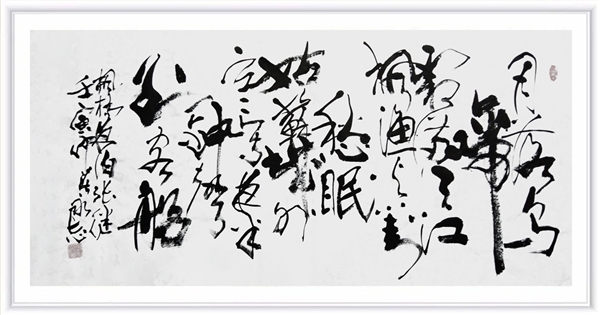 月落乌
啼
霜满天江
枫渔火对
愁眠
姑苏城外
寒山寺夜半
钟声
到客船
枫桥夜泊张继
壬寅